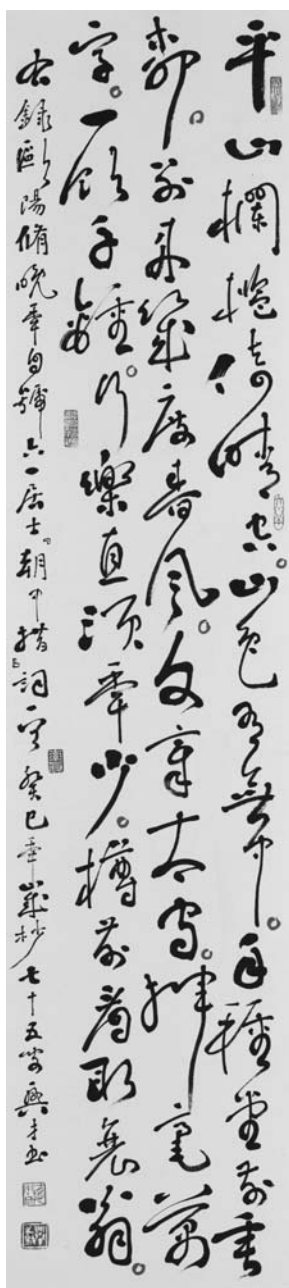 平山欄檻倚晴空。山色有無中。手種堂前垂
柳。別來幾度春風。文章太守。揮毫萬
字。一飲千鍾。行樂直須年少。樽前看取衰翁。
右錄歐陽脩晚年自號六一居士。朝中措詞一首 癸巳年歲杪七十五叟興才書